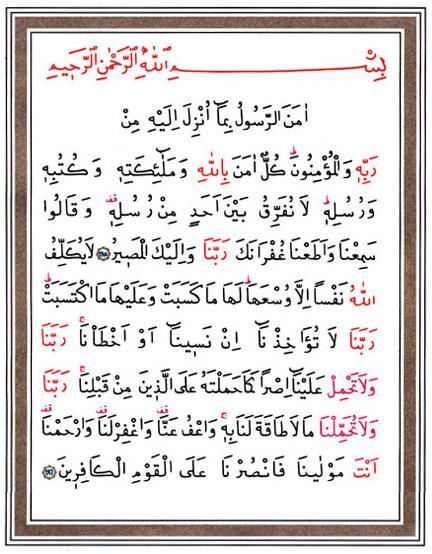 بِسْمِ اللّٰهِ الرَّحْمٰنِ الرَّحِيمِ
اٰمَنَ الرَّسُولُ بِمَٓا اُنْزِلَ اِلَيْهِ مِنْ
رَبِّهٖ وَالْمُؤْمِنُونَۜ كُلٌّ اٰمَنَ بِاللّٰهِ وَمَلٰٓئِكَتِهٖ وَكُتُبِهٖ
وَرُسُلِهٖۜ لَا نُفَرِّقُ بَيْنَ اَحَدٍ مِنْ رُسُلِهٖ۠ وَقَالُوا
سَمِعْنَا وَاَطَعْنَا غُفْرَانَكَ رَبَّنَا وَاِلَيْكَ الْمَصِيرُ ﴿٢٨٥﴾ لَا يُكَلِّفُ
اللّٰهُ نَفْسًا اِلَّا وُسْعَهَاۜ لَهَا مَا كَسَبَتْ وَعَلَيْهَا مَا اكْتَسَبَتْۜ
رَبَّنَا لَا تُؤَاخِذْنَٓا اِنْ نَسِينَٓا اَوْ اَخْطَأْنَاۚ رَبَّنَا
وَلَا تَحْمِلْ عَلَيْنَٓا اِصْرًا كَمَا حَمَلْتَهُ عَلَى الَّذِينَ مِنْ قَبْلِنَاۚ رَبَّنَا
وَلَا تُحَمِّلْنَا مَا لَا طَاقَةَ لَنَا بِهٖۚ وَاعْفُ عَنَّا۠ وَاغْفِرْ لَنَا۠ وَارْحَمْنَا۠
اَنْتَ مَوْلٰينَا فَانْصُرْنَا عَلَى الْقَوْمِ الْكَافِرِينَ ﴿٢٨٦﴾